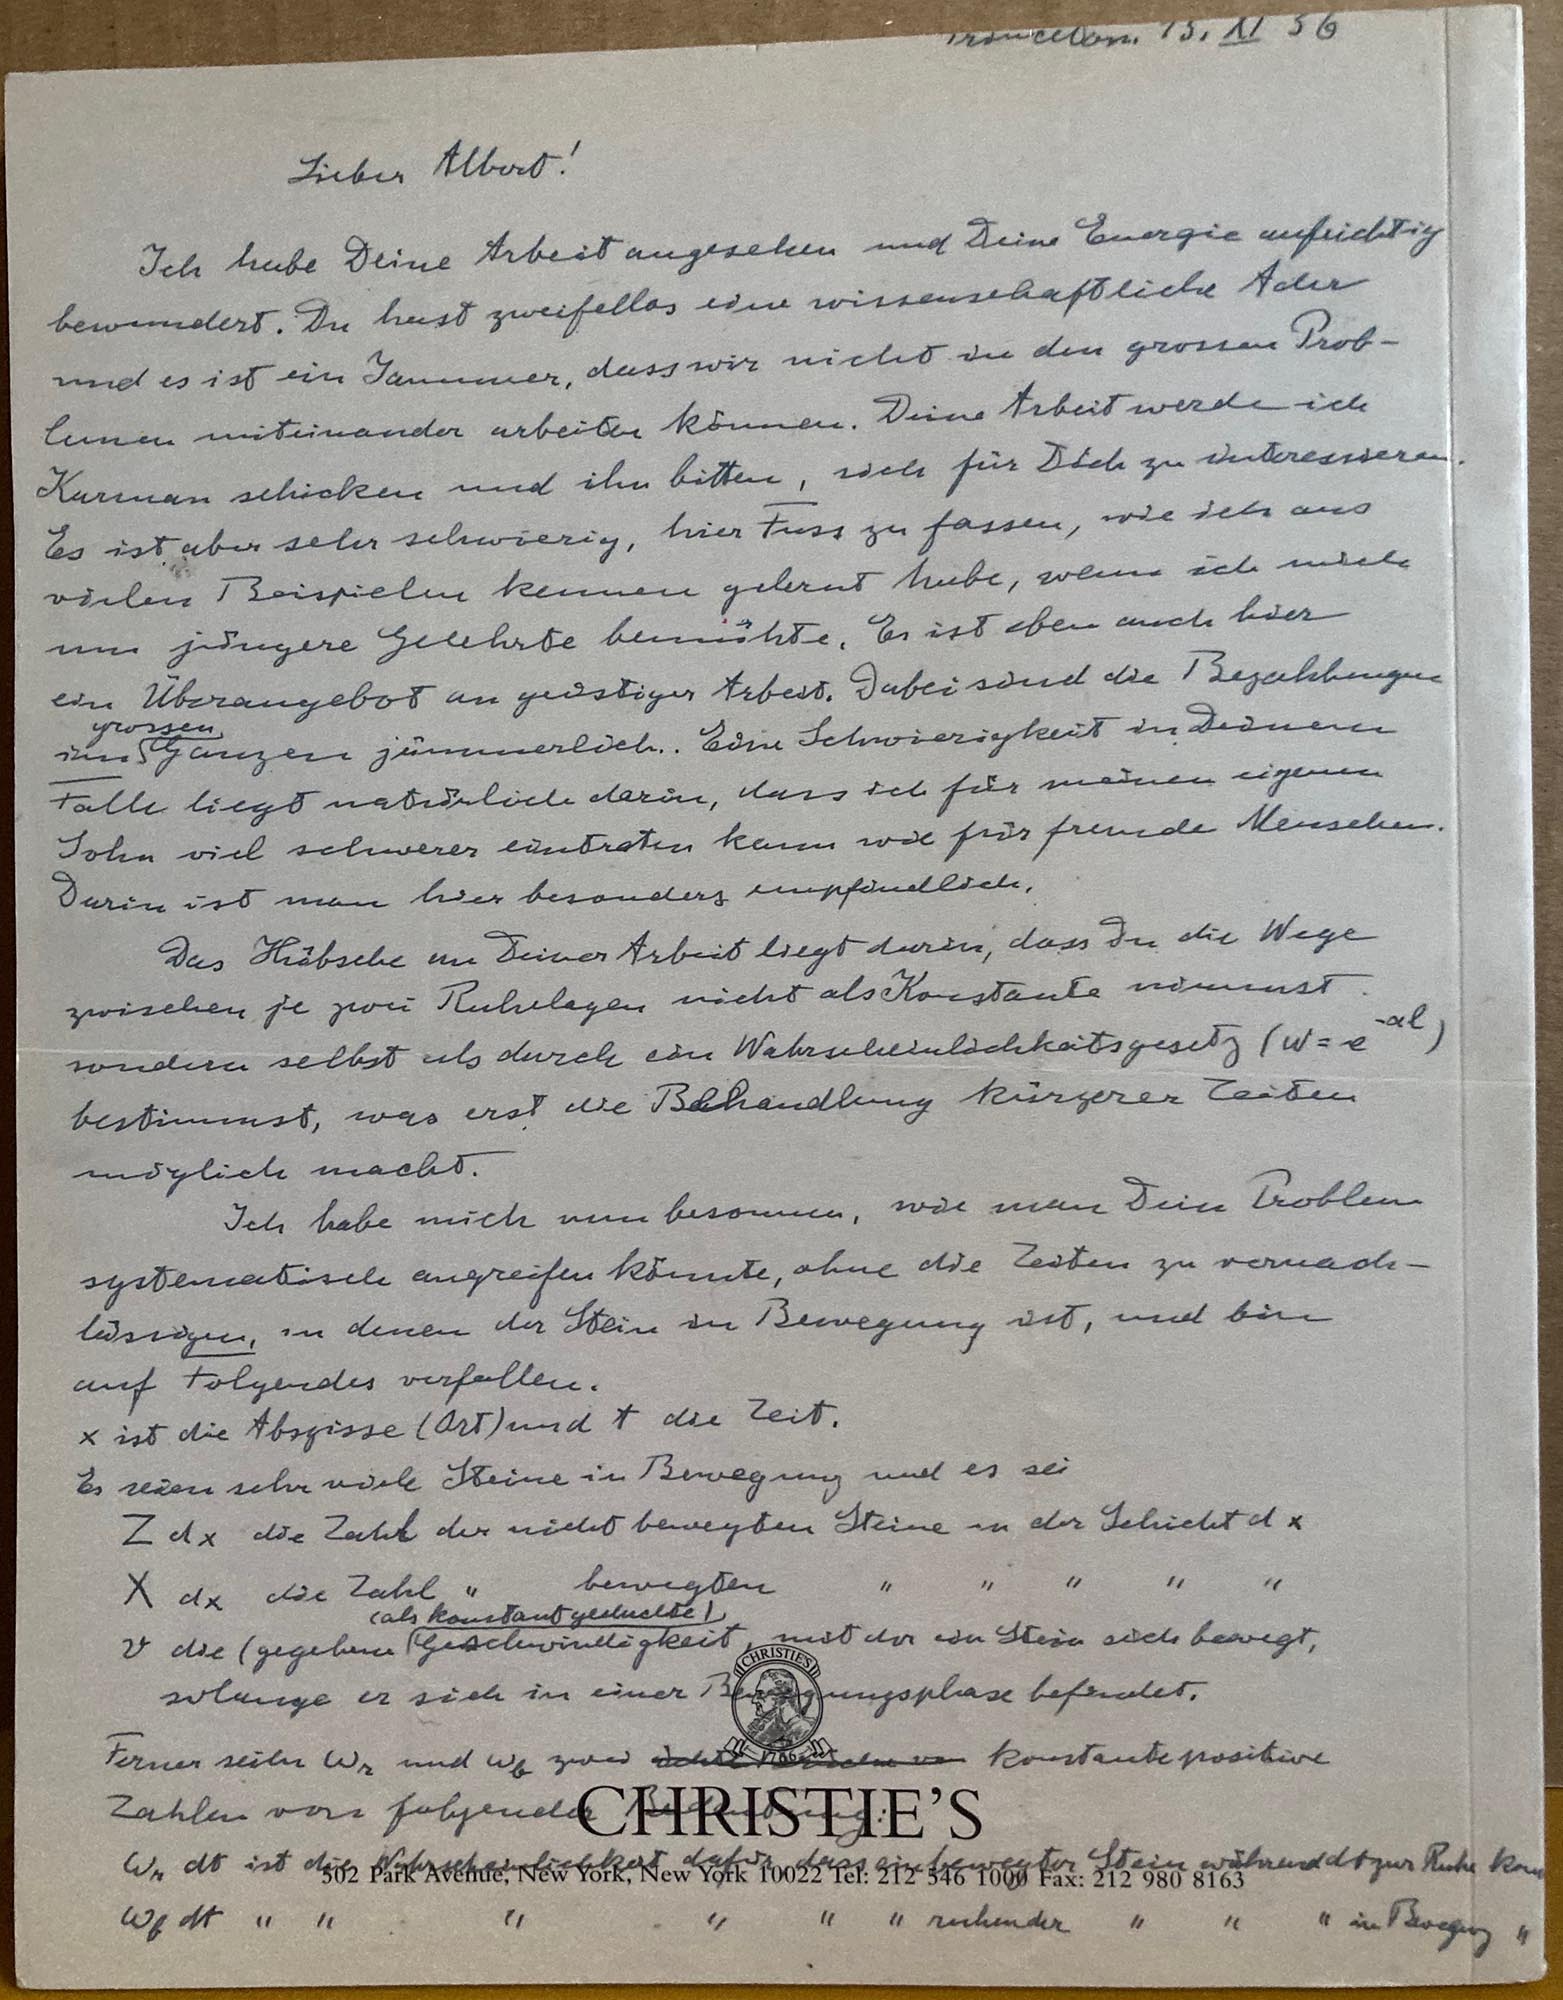 Princeton. 13. XI 36
Lieber Albert!
Ich habe Deine Arbeit angesehen und Deine Energie aufrichtig
bewundert. Du hast zweifellos eine wissenschaftliche Ader
und es ist ein Jammer, dass wir nicht in den grossen Prob-
lemen miteinander arbeiten können. Deine Arbeit werde ich
Karman schicken und ihn bitten, sich für Dich zu interessieren.
Es ist aber sehr schwierig, hier Fuss zu fassen, wie ich aus
vielen Beispielen kennen gelernt habe, wenn ich mich
um jüngere Gelehrte bemühte. Es ist eben auch hier
ein Überangebot an geistiger Arbeit. Dabei sind die Bezahlungen
im grossen Ganzen jämmerlich. Eine Schwierigkeit in Deinem
Falle liegt natürlich darin, dass ich für meinen eigenen
Sohn viel schwerer eintreten kann wie für fremde Menschen.
Darin ist man hier besonders empfindlich.
Das Hübsche an Deiner Arbeit liegt darin, dass Du die Wege
zwischen je zwei Ruhelagen nicht als Konstante nimmst
sondern selbst als durch ein Wahrscheinlichkeitsgesetz (w = e^-αl)
bestimmst, was erst die Behandlung kürzerer Zeiten
möglich macht.
Ich habe mich nun besonnen, wie man Dein Problem
systematisch angreifen könnte, ohne die Zeiten zu vernach-
lässigen, in denen der Stein in Bewegung ist, und bin
auf Folgendes verfallen.
x ist die Abszisse (Ort) und t die Zeit.
Es seien sehr viele Steine in Bewegung und es sei
Z dx die Zahl der nicht bewegten Steine in der Schicht dx
X dx die Zahl " bewegten " " " " "
v die (gegebene (als konstant gedachte) Geschwindigkeit, mit der ein Stein sich bewegt,
solange er sich in einer Bewegungsphase befindet.
Ferner seien Wr und Wb zwei konstante positive
Zahlen von folgender Bedeutung:
Wr dt ist die Wahrscheinlichkeit dafür, dass ein bewegter Stein während dt zur Ruhe kom
Wb dt " " " " " " ruhender " " " in Bewegung "
CHRISTIE'S
1766
CHRISTIE'S
502 Park Avenue, New York, New York 10022 Tel: 212 546 1000 Fax: 212 980 8163